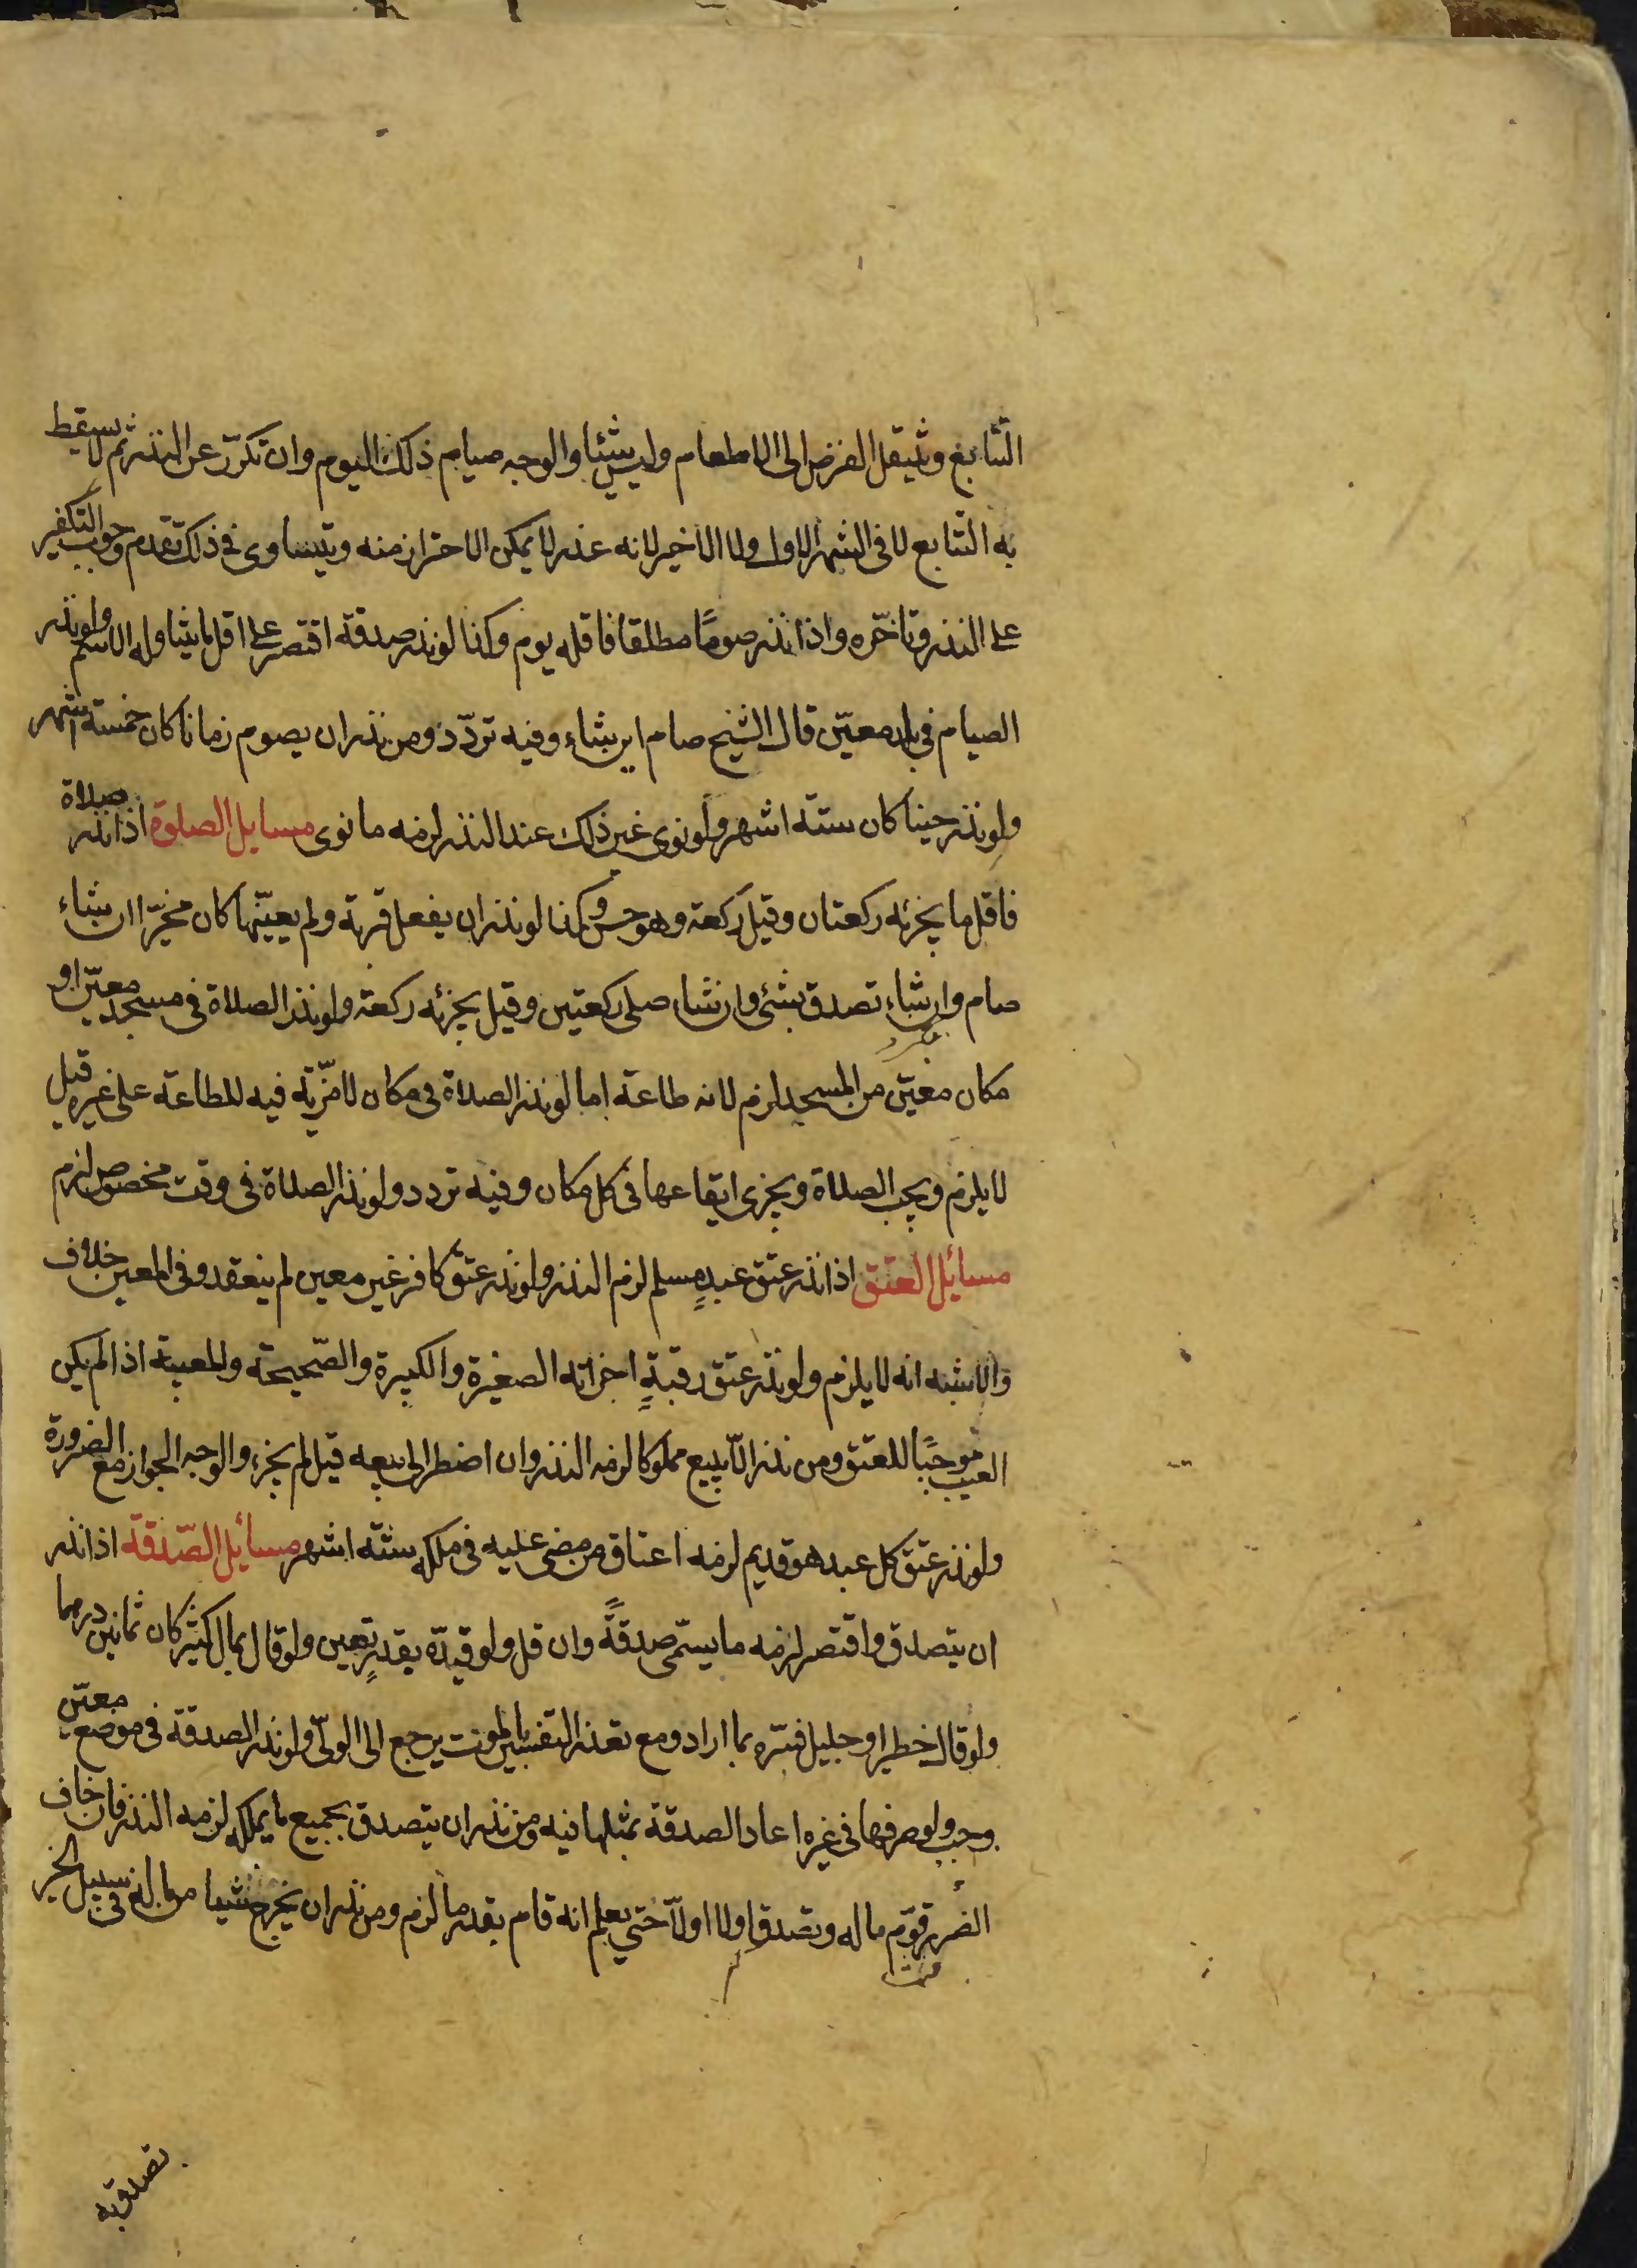 التتابع وينتقل الفرض الى الاطعام وليس شئيا والوجه صيام ذلك اليوم وان تكرّر عن النذر ثم لا يسقط
به التتابع لا فى الشهر الاول ولا الاخير لانه عذر لا يمكن الاحتراز منه ويتساوى فى ذلك تقدم وجوب التكفير
على النذر وتاخّره واذا نذر صومًا مطلقا فاقله يوم وكذا لو نذر صدقة اقتصر على اقل ما يتناوله الاسم ولو نذر
الصيام فى بلد معيّن قال الشيخ صام اين شاء وفيه تردّد ومن نذر ان يصوم زمانا كان خمسة اشهر
ولو نذر حينا كان ستة اشهر ولو نوى غير ذلك عند النذر لزمه ما نوى مسايل الصلوة اذا نذر صلاة
فاقل ما يجزئه ركعتان وقيل ركعة وهو حسن وكذا لو نذر ان يفعل قربة ولم يعيّنها كان مخيّرا ان شاء
صام وان شاء تصدق بشئ وان شاء صلى ركعتين وقيل يجزئه ركعة ولو نذر الصلاة فى مسجد معيّن او
مكان معيّن من المسجد لزم لانه طاعة اما لو نذر الصلاة فى مكان لا مزّية فيه للطاعة على غيره قيل
لا يلزم ويجب الصلاة ويجزى ايقاعها فى كل مكان وفيه تردد ولو نذر الصلاة فى وقت مخصوص لزم
مسائل العتق اذا نذر عتق عبدٍ مسلم لزم النذر ولو نذر عتق كافر غير معين لم ينعقد وفى المعين خلاف
والاشبه انه لا يلزم ولو نذر عتق رقبةٍ اجزاته الصغيرة والكبيرة والصّحيحة والمعيبة اذا لم يكن
العيب موجبًا للعتق ومن نذر الّا يبيع مملوكا لزمه النذر وان اضطر الى بيعه قيل لم يجزء والوجه الجواز مع الضرورة
ولو نذر عتق كل عبد هو قديم لزمه اعتاق من مضى عليه فى ملكه ستة اشهر مسائل الصّدقة اذا نذر
ان يتصدق واقتصر لزمه ما يسمّى صدقةً وان قل ولو قيدّه بقدرٍ تعين ولو قال بمال كثير كان ثمانين درهما
ولو قال خطير او جليل فسّره بما اراد ومع تعذر التفسير بالموت يرجع الى الولّى ولو نذر الصدقة فى موضع معيّن
وجب ولو صرفها فى غيره اعاد الصدقة بمثلها فيه ومن نذر ان يتصدق بجميع ما يملكه لزمه النذر فان خاف
الضرر قوّم ماله وتصدق اولا اولّا حتى يعلم انه قام بقدر ما لزم ومن نذر ان يخرج شيئا من ماله فى سبيل الخير
تصدق به